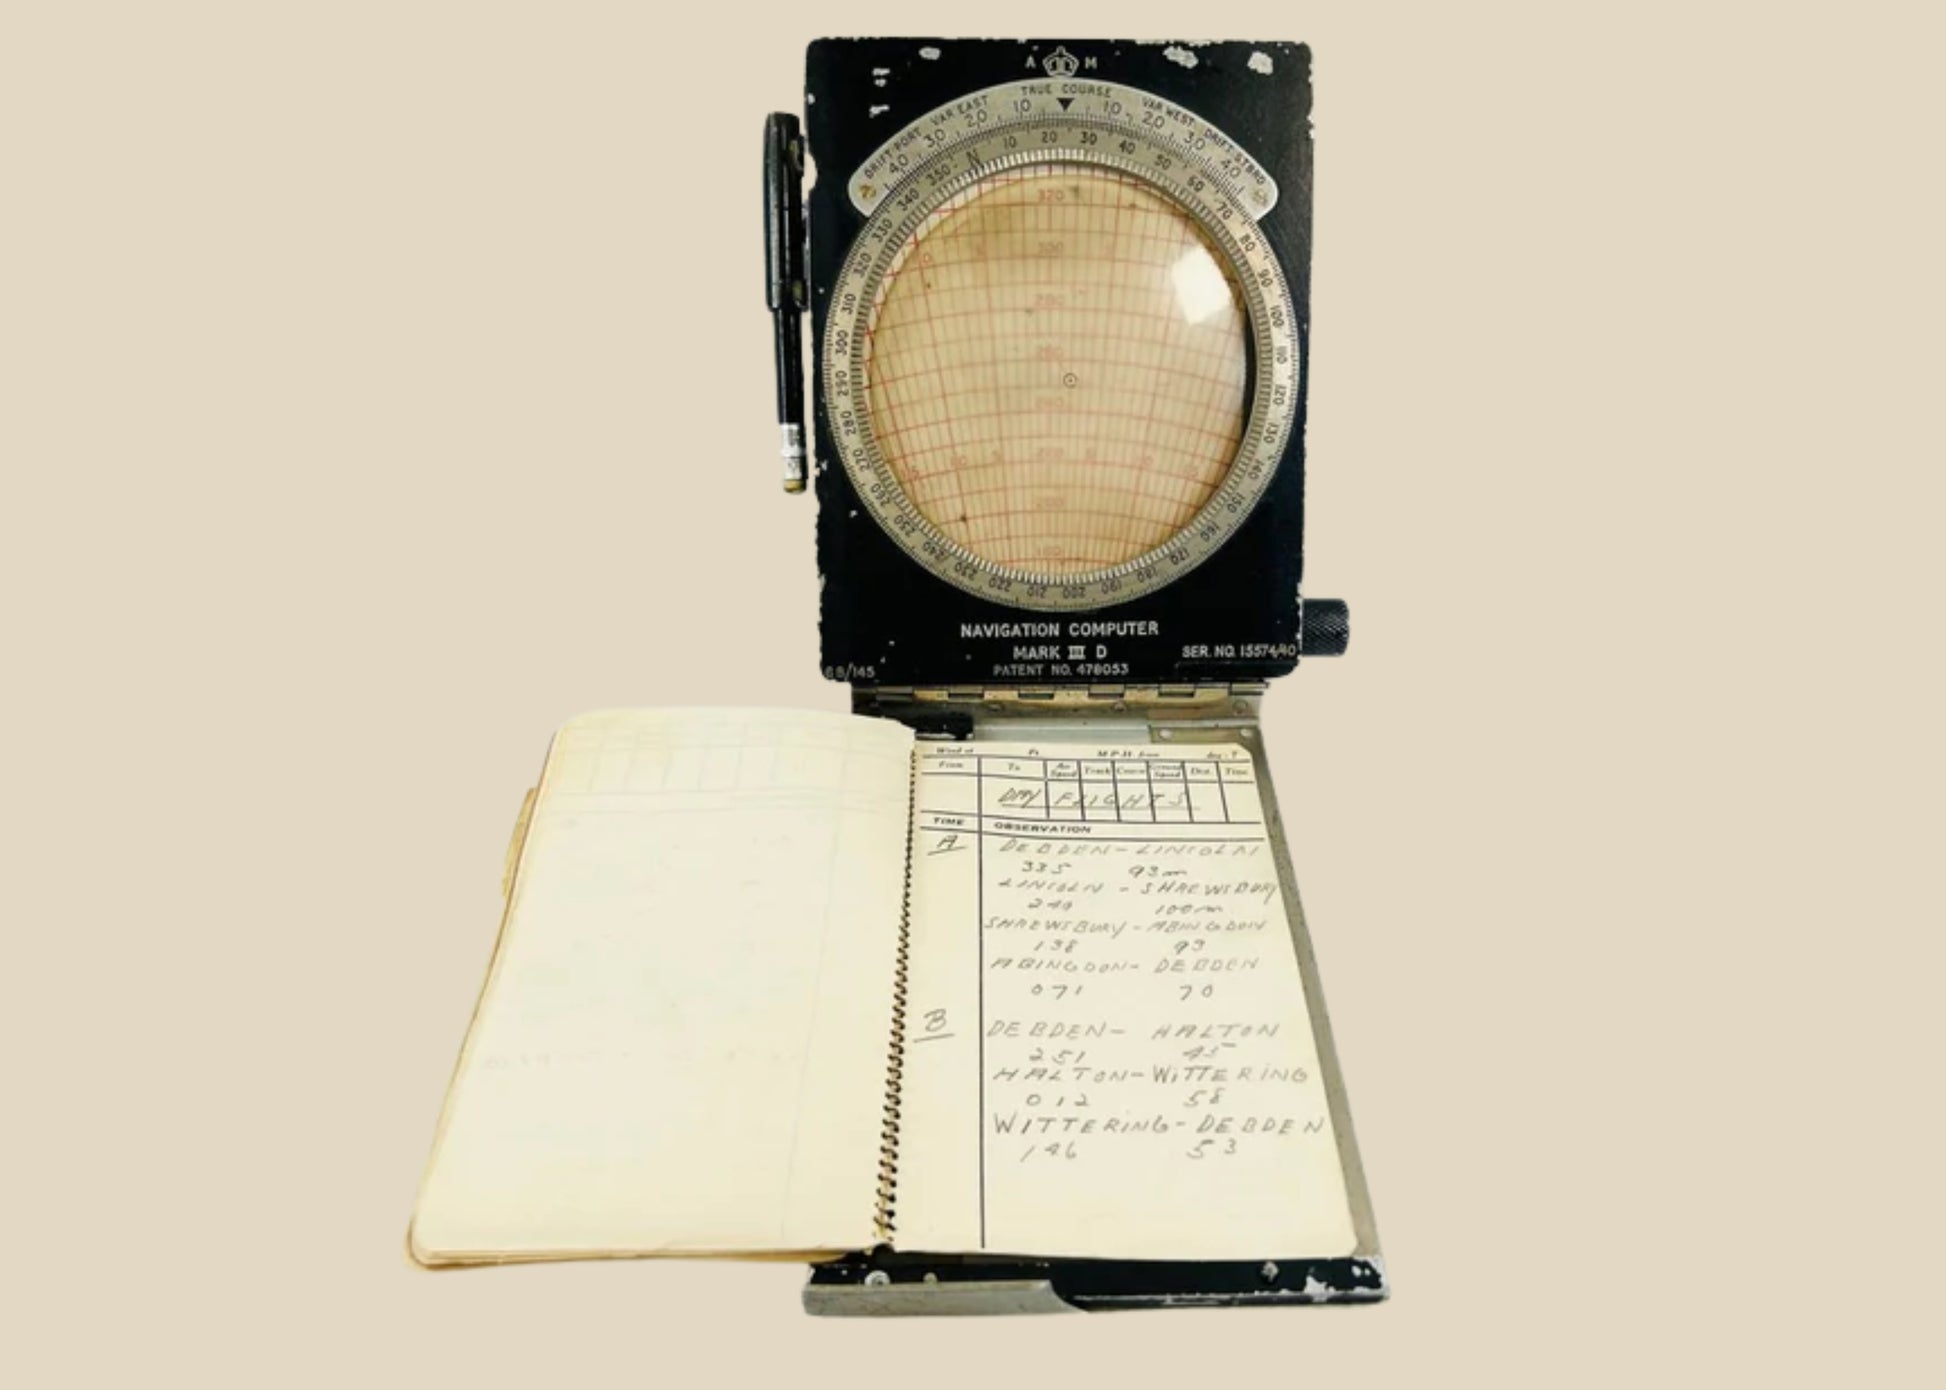 A M
TRUE COURSE
DRIFT PORT VAR EAST VAR WEST DRIFT STBRD
40 30 20 10 10 20 30 40
N 10 20 30 40 50 60 70 80 90 100 110 120 130 140 150 160 170 180 190 200 210 220 230 240 250 260 270 280 290 300 310 320 330 340 350
320
300
280
260
240
200
180
NAVIGATION COMPUTER
MARK III D
SER. NO. 15574/40
PATENT NO. 478053
6B/145
Wind at Ft. M.P.H. from deg. T
From To Air Speed Track Course Ground Speed Dist. Time
DAY FLIGHTS
TIME OBSERVATION
A DEBDEN - LINCOLN
335 93m
LINCOLN - SHREWSBURY
100m.
SHREWSBURY - ABINGDON
138 93
ABINGDON - DEBDEN
071 70
B DEBDEN - HALTON
251 45
HALTON - WITTERING
012 58
WITTERING - DEBDEN
146 53